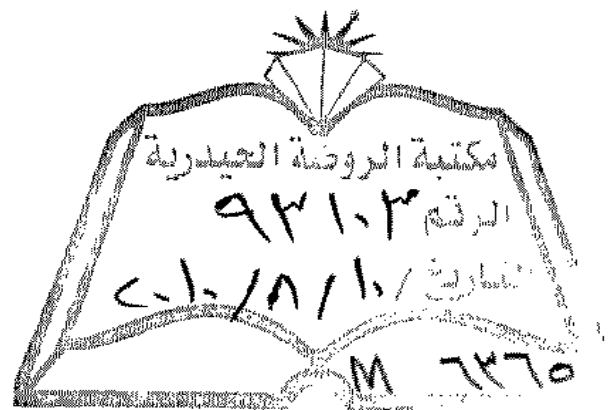 مكتبة الروضة الحيدرية
الرقم ٩٣١٠٣
التاريخ ١٠/٨/٢٠١٠
M ٦٣٦٥